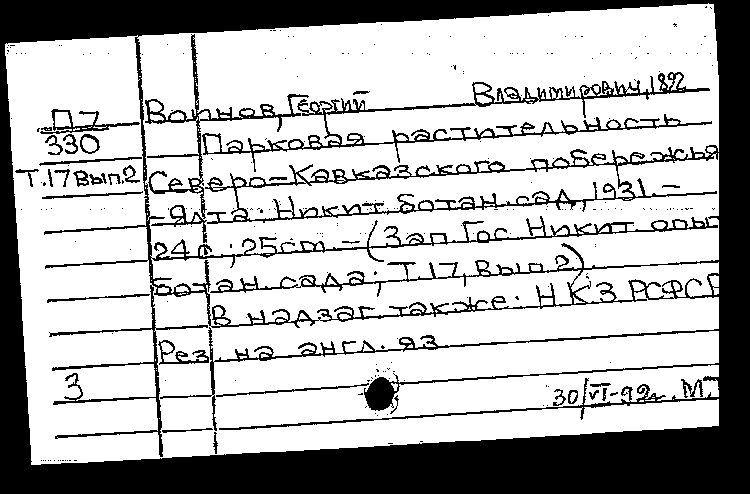 П7 Воинов, Георгий Владимирович, 1892
330 Парковая растительность
Т.17 Вып.2 Северо-Кавказского побережья
- Ялта: Никит. ботан. сад, 1931. -
24 с.; 25 cm. - (Зап. Гос. Никит. опыт.
ботан. сада; Т.17, Вып.2)
В надзаг. также: НКЗ РСФСР
Рез. на англ. яз
3
30/VI-92г. М.